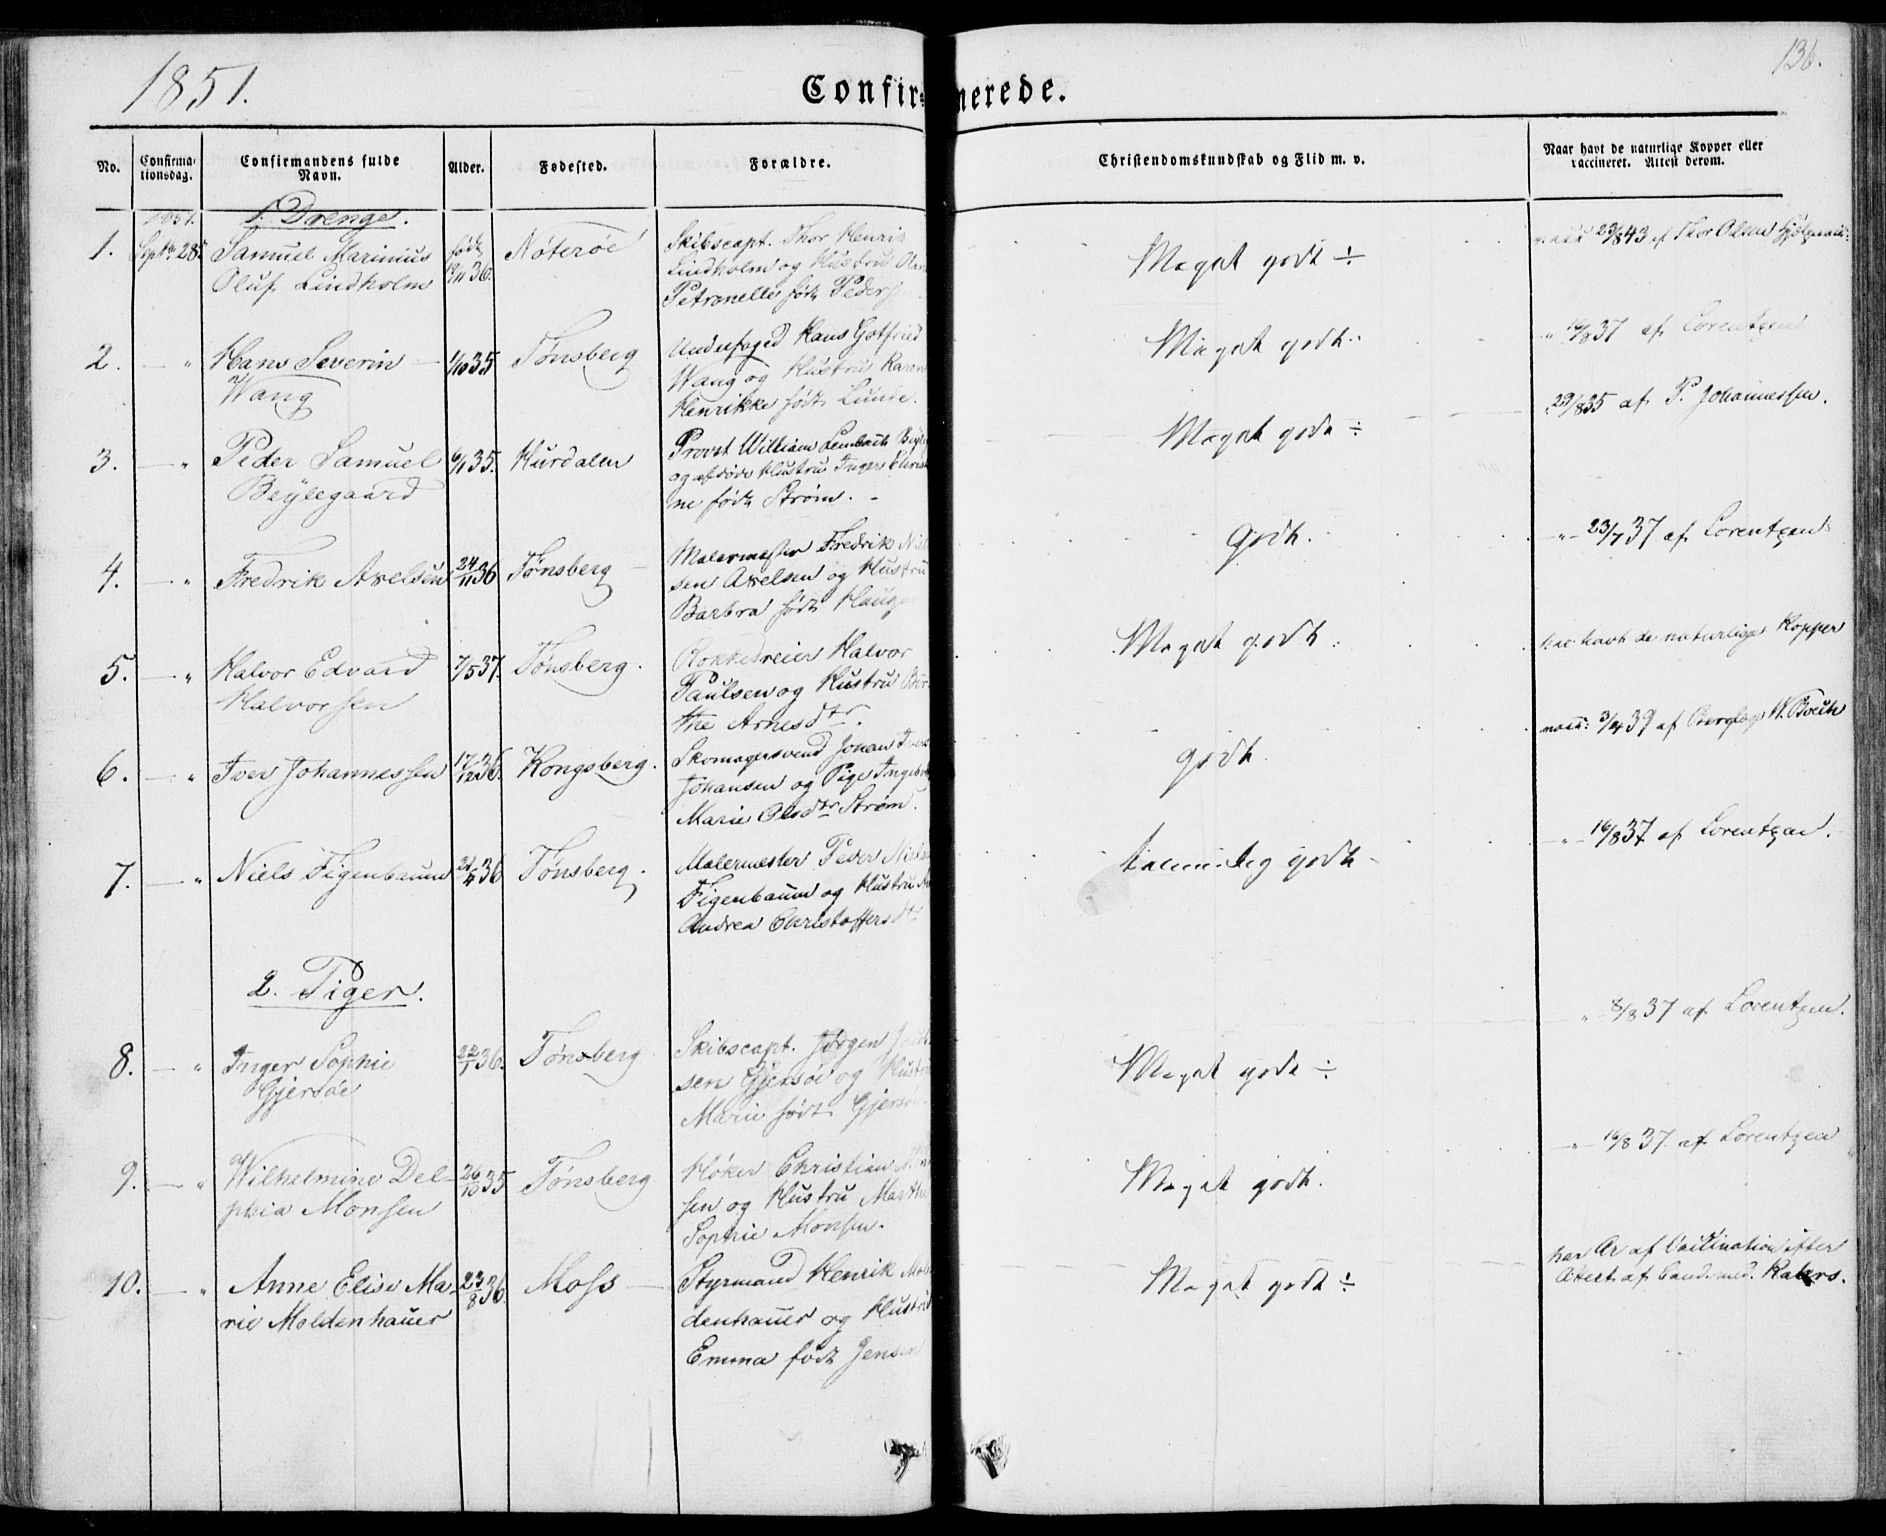 1851.
Confirmerede.
136.
No.
Confirma-
tionsdag.
Confirmandens fulde
Navn.
Alder.
Fødested.
Forældre.
Christendomskundskab og Flid m. v.
Naar havt de naturlige Kopper eller
vaccineret. Attest derom.
1851.
1. Drenge.
1. Septbr 28de Samuel Marinius født Nøterøe Skibscapt. Thor Henrik
Oluf Lindholm 19/11 36. Lindholm og Hustru
Petronelle født Pedersen.
Meget godt ÷
23/8 43 af Thor Olsen
2. — " Hans Severin — 1/10 35. Tønsberg Underfoged Hans Gotfried
Wang Wang og Hustru Karen
Henrikke født Lunde.
Meget godt.
" 16/8 37 af Lorentzen
3. — " Peder Samuel 6/1 35. Hurdalen Provst William
Beylegaard og afdøde Hustru Inger Christi
ne født Strøm. -
Meget godt ÷
29/8 35 af P. Johannessen.
4. — " Fredrik Axelsen 24/11 36 Tønsberg — Malermester Fredrik Niel
sen Axelsen og Hustru
Barbra født Hauge
Godt.
-"- 23/7 37 af Lorentzen
5. — " Halvor Edvard 7/5 37. Tønsberg. Rokkedreier Halvor
Halvorsen Paulsen og Hustru Bir
the Arnesdtr.
Meget godt.
har havt de naturlige Kopper
6. — " Iver Johannessen 17/12 36. Kongsberg. Skomagersvend Johan Iver
Johansen og Pige Ingeb
Marie Olsdtr Strøm.
godt.
vacc: 3/4 39 af Berglæge W. Boeck
7. — " Niels Figenbaum 21/4 36 Tønsberg. Malermester Peder Niels
Figenbaum og Hustru
Andrea Christoffersdtr
temmelig godt
-"- 16/8 37 af Lorentzen.
2. Piger.
8. — " Inger Sophie 22/1 36. Tønsberg Skibscapt. Jørgen Jacob
Gjersøe sen Gjersøe og Hustru
Marie født Gjersøe
Meget godt ÷
" 8/8 37 af Lorentzen.
9. — " Wilhelmine Del- 26/10 35 Tønsberg Høker Christian Mon
phia Monsen sen og Hustru Marthe
Sophie Monsen.
Meget godt.
-"- 16/8 37. af Lorentzen
10. — " Anne Elise Ma- 23/8 36. Moss — Styrmand Henrik Mol
rie Moldenhauer denhauer og Hustru
Emma født Jensen
Meget godt ÷
har Ar af Vaccination efter
Attest af Cand. med.